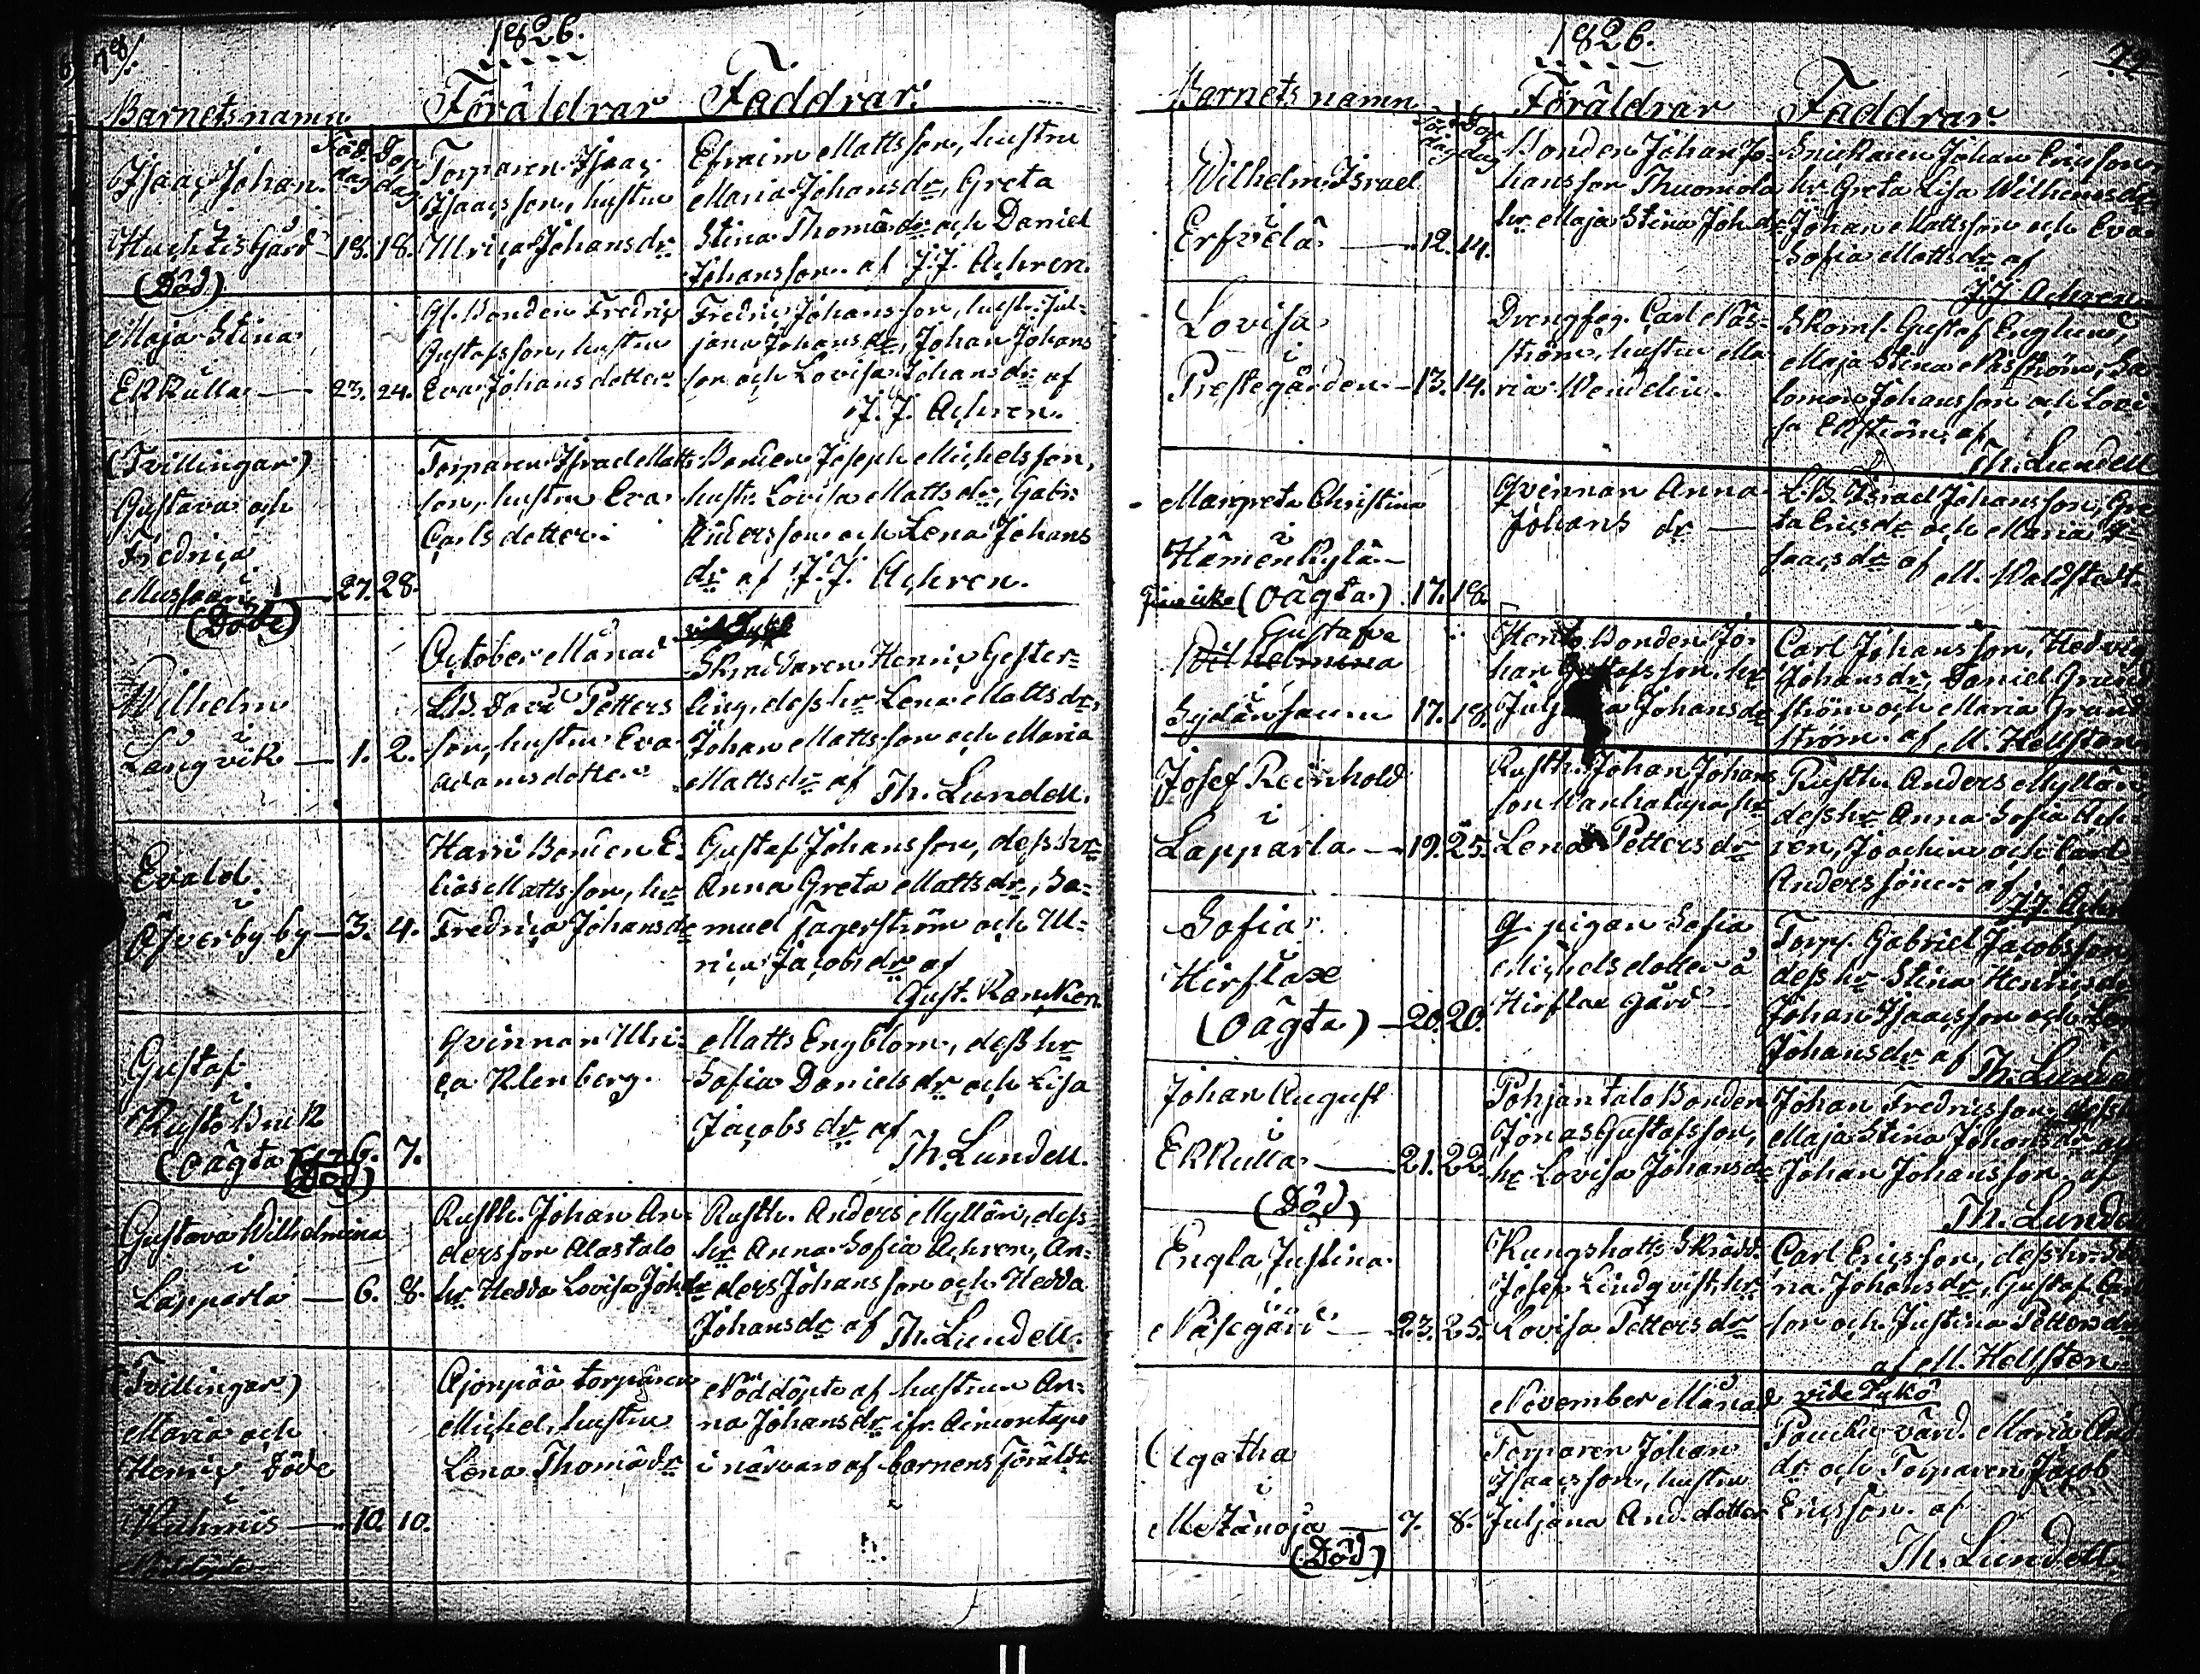 78/.
1826.
Barnets namn Föräldrar Faddrar.
Född dag Dop dag
Isaac Johan.
Huchtis Gård 18. 18.
(Död)
Torparen Isaac
Isaacsson, hustru
Ulrica Johansdr
Efraim Mattsson, hustru
Maria Johansdr, Greta
Stina Thomædr och Daniel
Johansson. af J. J. Achren.
Maja Stina
Ekkulla 23. 24.
Gl. Bonden Fredric
Gustafsson, hustru
Eva Johansdotter
Fredric Johansson, hust. Jul-
jana Johansdr, Johan Johans
son och Lovisa Johansdr af
J. J. Achren.
(Tvillingar)
Gustava och
Fredrica
i
27. 28.
(Döde)
Torparen Israel Matts
son, hustru Eva
Carlsdotter.
Bonden Joseph Michelsson,
hust. Lovisa Mattsdr, Gabr.
Andersson och Lena Johans
dr af J. J. Achren.
October Månad
Wilhelm
i
Långvik 1. 2.
LB. David Petters
son, hustru Eva
Adamsdotter
Skräddaren Henric Gester-
ling, dess hr Lena Mattsdr,
Johan Mattsson och Maria
Mattsdr af Th. Lundell.
Evald
i
Öfverby by 3. 4.
Harri Bonden E-
lias Mattsson, hr
Fredrica Johansdr
Gustaf Johansson, dess hr
Anna Greta Mattsdr, Sa-
muel Fagerström och Ul-
rica Jacobsdr af
Gust. Rancken
Gustaf
i
Kusto Bruk
(oägta) 6. 7.
(Död)
Qvinnan Ulri-
ca Klenberg.
Matts Engblom, dess hr
Sofia Danielsdr och Lisa
Jacobsdr af
Th. Lundell.
Gustava Wilhelmina
i
Lapparla 6. 8.
Rusth. Johan An-
dersson Alastalo
hr Hedda Lovisa Joh.dr
Rusth. Anders Mylläri, dess
hr Anna Sofia Achren, An-
ders Johansson och Hedda
Johansdr af Th. Lundell.
(Tvillingar)
Maria och
Henric Döde
i
Kuhmis 10. 10.
Nöddöpte
Ajonpää torparen
Michel, hustru
Lena Thomædr
Nöddöpte af hustrun An-
na Johansdr ifr. Aimontapo
i närvaro af barnens Föräldr.
1826.
Barnets namn Föräldrar Faddrar.
Föd dag Dop dag
Wilhelm Israel
i
Erfvelä 12. 14.
Bonden Johan Jo-
hansson Thuomola
hr Maja Stina Joh.dr
Snickaren Johan Ericsson
hr Greta Lisa Wilhemsdr
Johan Mattsson och Eva
Sofia Mattsdr af
J. J. Achren.
Lovisa
i
Prestegården 13. 14.
Drengfog. Carl Näs-
ström, hustru Ma-
ria Wendelin.
Skoml. Gustaf Englund,
Maja Stina Näsström, Sa-
lomon Johansson och Lovi-
sa Ekström, af
Th. Lundell
Margreta Christina
i
Hämenkylä
(oägta) 17. 18.
Qvinnan Anna
Johans dr
LB. Israel Johansson, Gre
ta Ericsdr och Maria I-
saacsdr af M. Waldstedt.
Gustafva
Wilhelmina
i
17. 18.
Bonden Jo-
han Gustafsson, hr
Juljana Johansdr
Carl Johansson, Hedvig
Johansdr, Daniel Grund
ström och Maria Grund
ström. af M. Hellsten
Josef Reinhold
i
Lapparla 19. 25.
Rusth. Johan Johans
son Wanhatupa, hr
Lena Pettersdr
Rusth. Anders Myllär
dess hr Anna Sofia Ach-
ren, Joachim och Carl
Anders söner af
J. J. Achr
Sofia
Hirslax
(oägta) 20. 20.
Q. pigan Sofia
Michelsdotter å
Hirslax gård
Torp. Gabriel Jacobsson
dess hr Stina Henricsdr
Johan Isaacsson och Len
Johansdr af Th. Lunde
Johan August
i
Ekkulla 21. 22.
(Död)
Pohjantalo Bonden
Jonas Gustafsson,
hr Lovisa Johansdr
Johan Fredricsson, dess
Maja Stina Johansdr och
Johan Johansson. af
Th. Lunde
Engla Justina
i
Näsegård 23. 25.
Kungshatts Skrädd.
Josef Lindqvist, hr
Lovisa Pettersdr
Carl Ericsson, dess hr Sti
na Johansdr, Gustaf
son och Justina Pettersdr
af M. Hellsten
November Månad vide Tykö
Agatha
i
Metänoja 7. 8.
(Död)
Torparen Johan
Isaacsson, hustru
Juljana And.dotter
Maria And
dr och Torparen Jacob
Ericsson. af
Th. Lundell